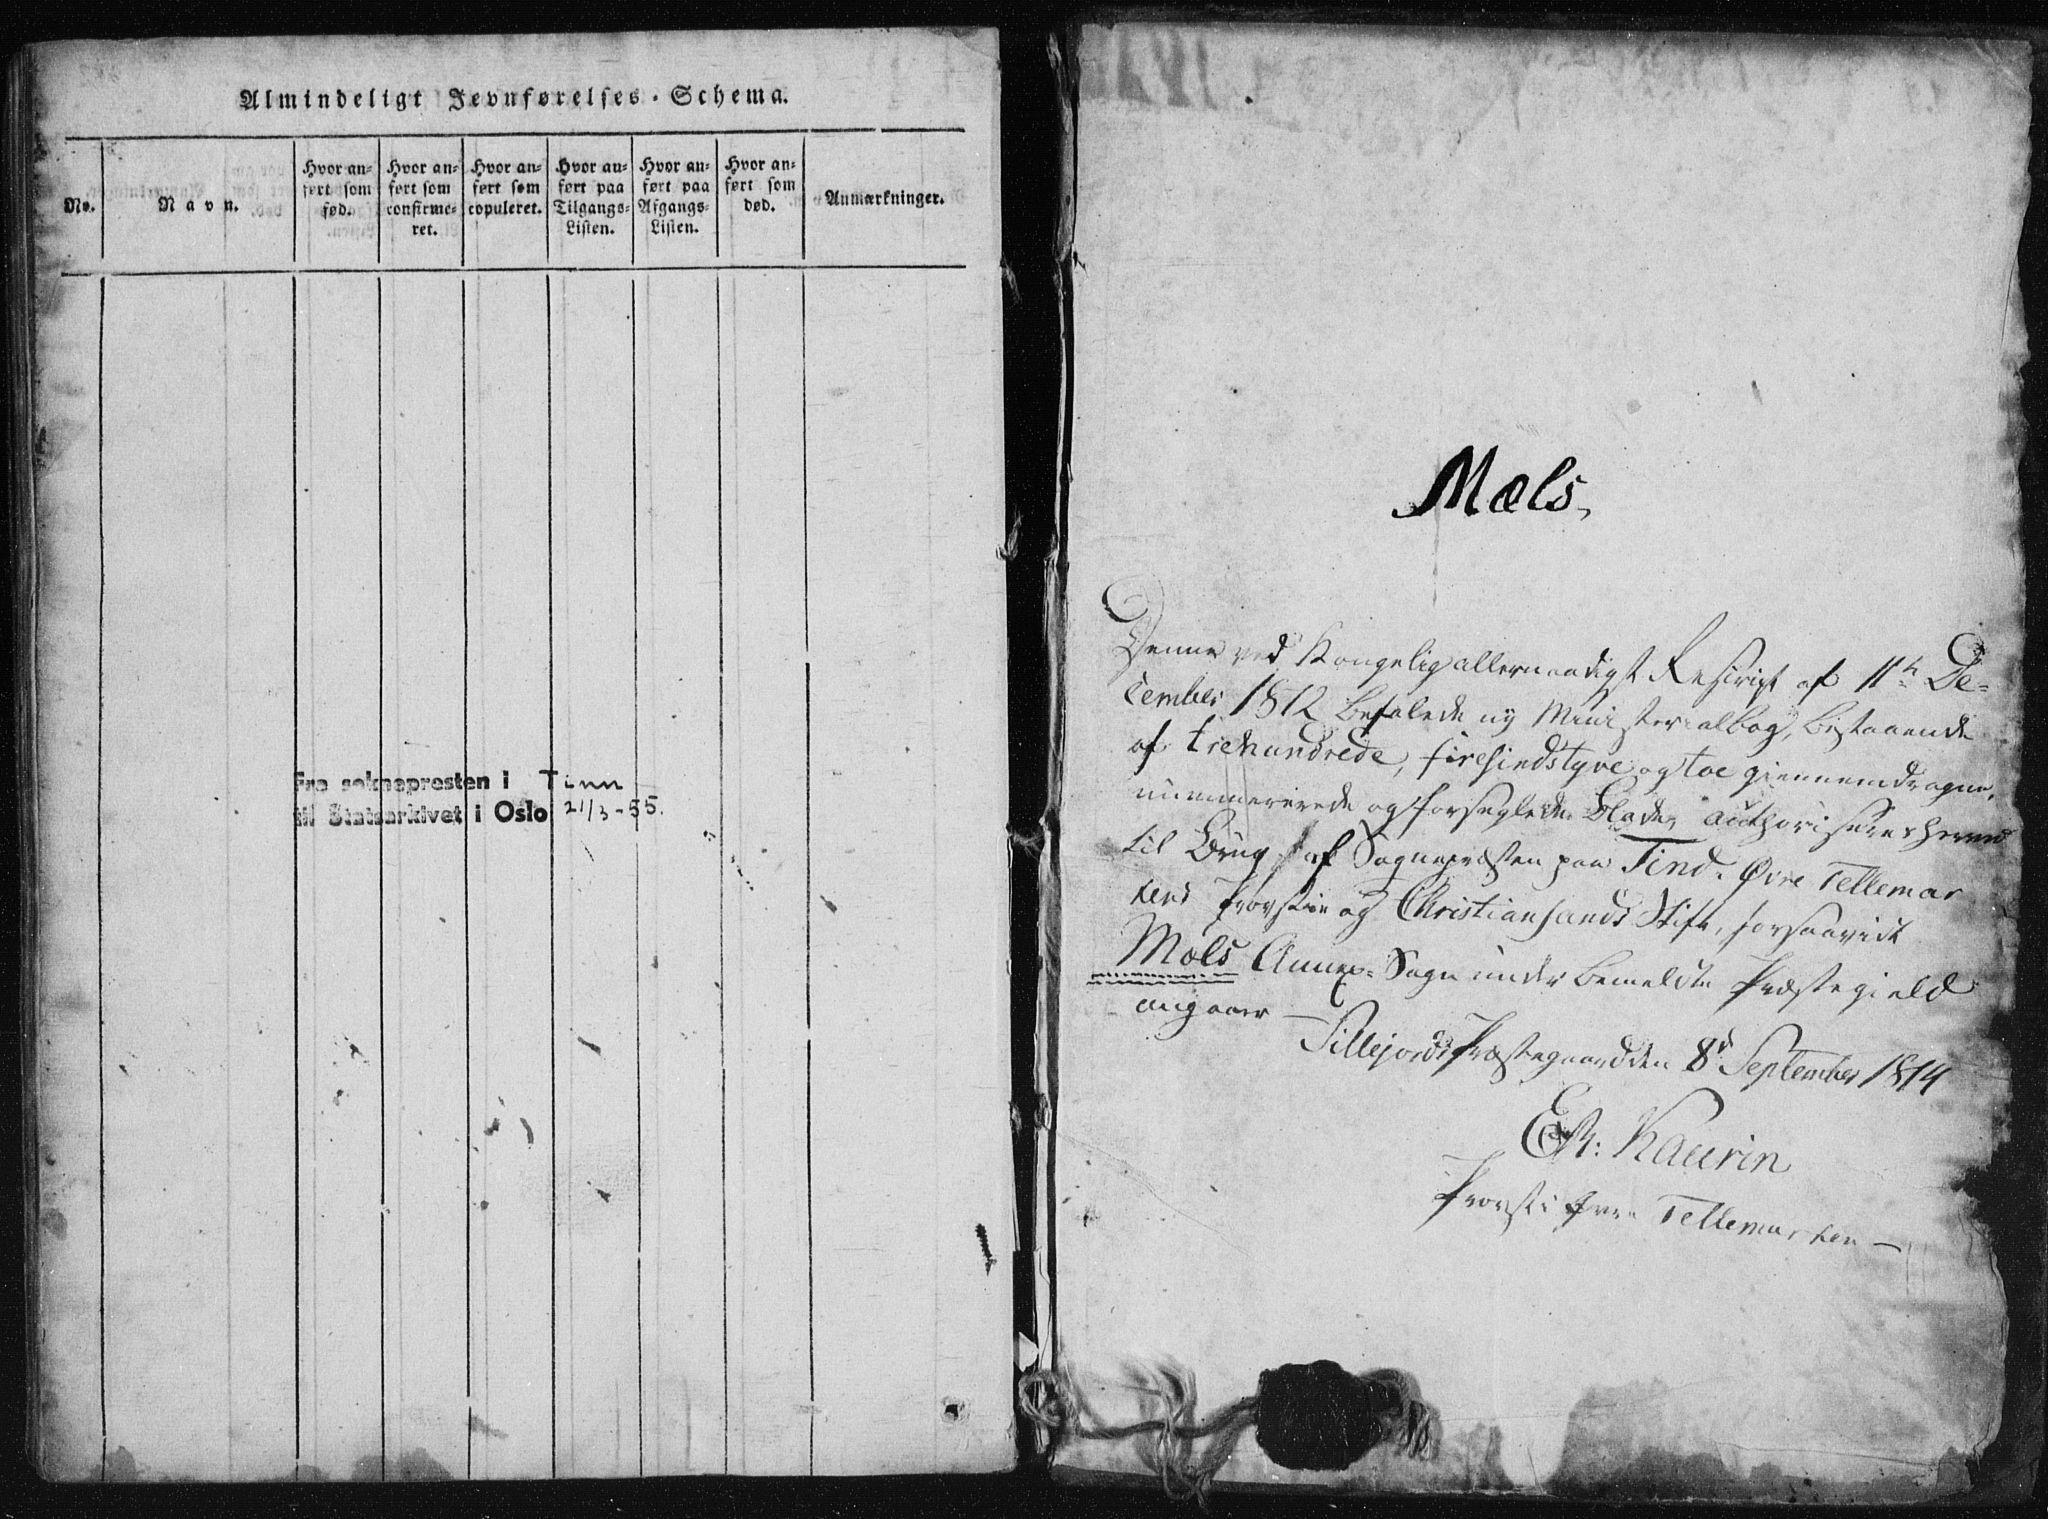 Almindeligt Jevnførelses-Schema.
No.
Navn.
Hvor an-
ført som
fød.
Hvor an-
ført som
confirme-
ret.
Hvor an-
ført som
copuleret.
Hvor an-
ført paa
Tilgangs-
Listen.
Hvor an-
ført paa
Afgangs-
Listen.
Hvor an-
ført som
død.
Anmærkninger.
Fra soknepresten i Tinn
til Statsarkivet i Oslo 21/3-55.
Mæls,
Denne ved Kongelig allernaadigst Rescript af 11th De-
cember 1812 befalede ny Ministerialbog, bestaaende
af trehundrede, firesindstyve og toe giennemdragne,
nummererede og forseglede Blade, authoriseres herved
til Brug af Sognepræsten paa Tind, Øvre Tellemar
kens Provstie og Christiansands Stift, forsaavidt
Mæls Annex-Sogn under bemeldte Præstegield
angaaer —
Sillejords Præstegaard den 8d September 1814
Kaurin
Provst i Tellemarken —